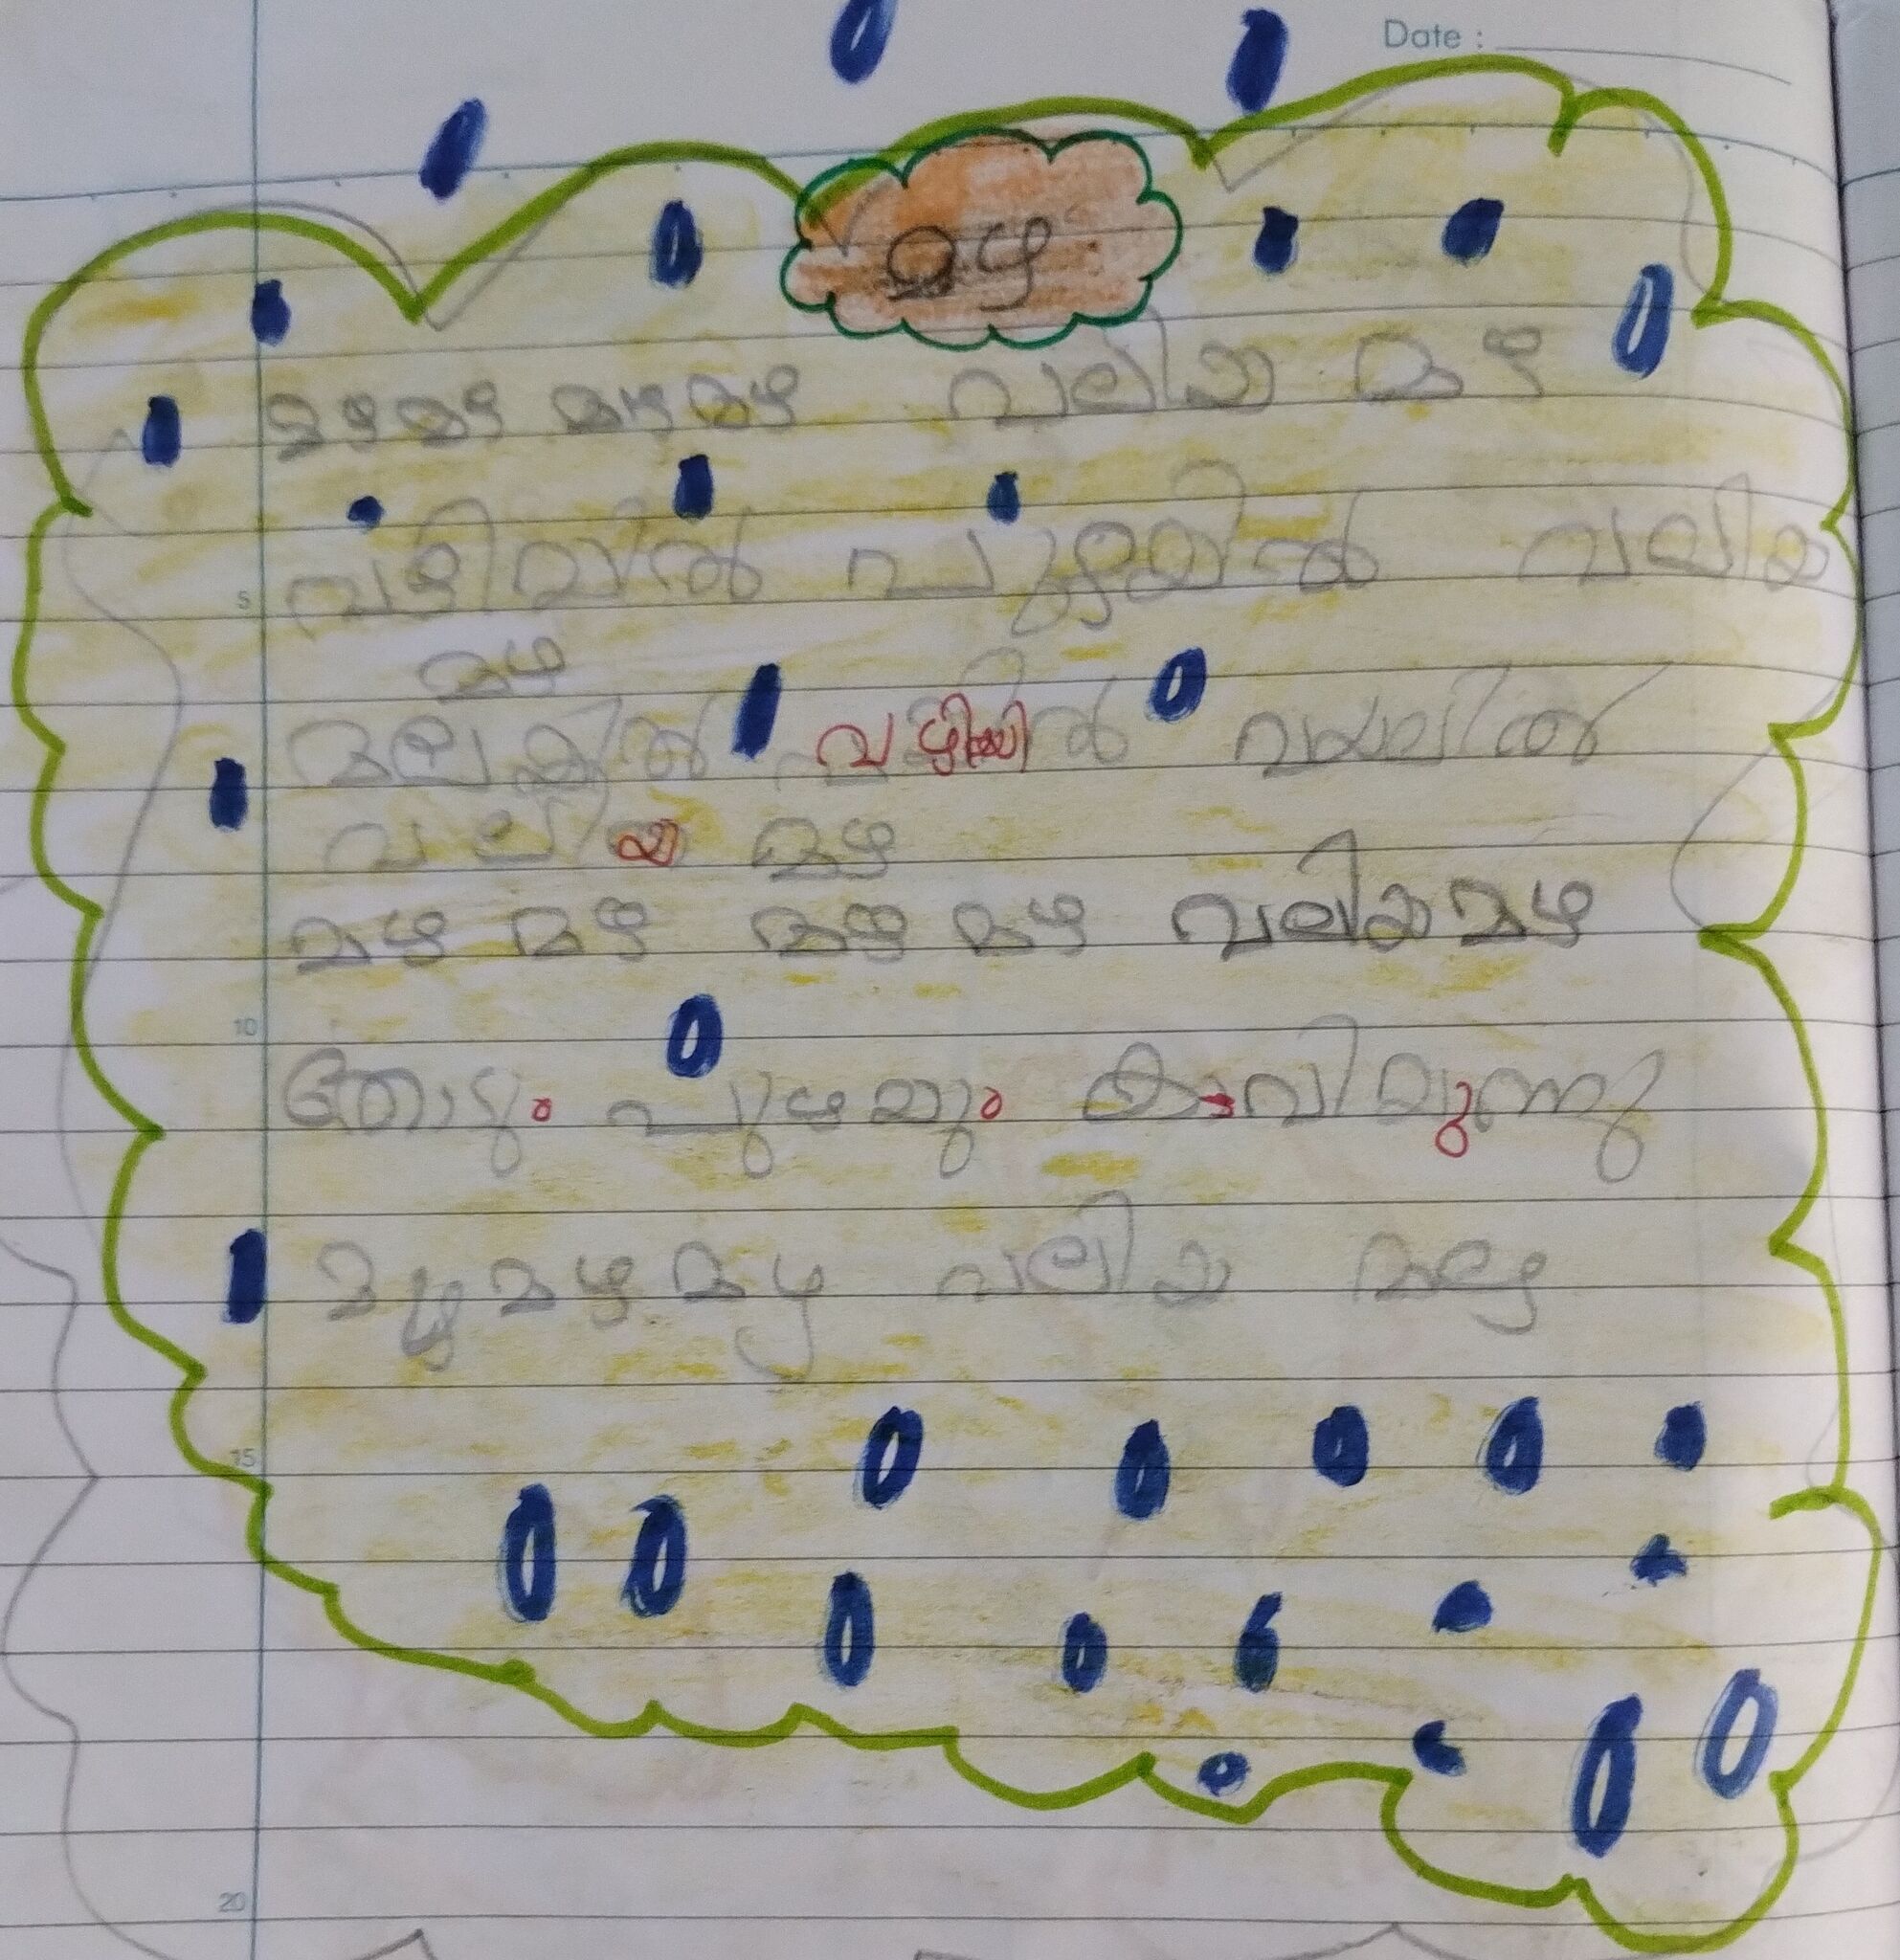 Date :
മഴ
മഴമഴ മഴമഴ വലിയ മഴ
വഴിയിൽ പുഴയിൽ വലിയ
മഴ
മലയിൽ വഴിയിൽ വയലിൽ
വലിയ മഴ
മഴ മഴ മഴ മഴ വലിയ മഴ
5
10
തോടും പുഴയും കവിയുന്നു
മഴമഴമഴ വലിയ മഴ
15
20